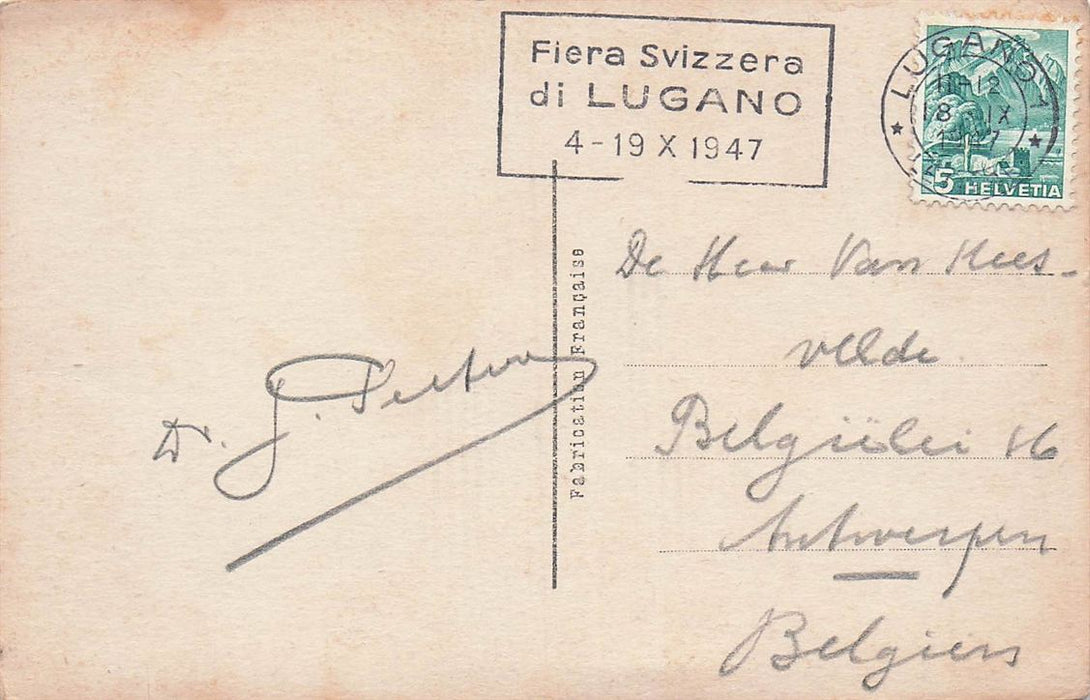 Fiera Svizzera
di LUGANO
4-19 X 1947
LUGANO 1
11-12
18 IX
1947
5 HELVETIA
Fabrication Française
De Heer Van Hees-
velde
Belgiëlei 16
Antwerpen
Belgien
Dr. J.